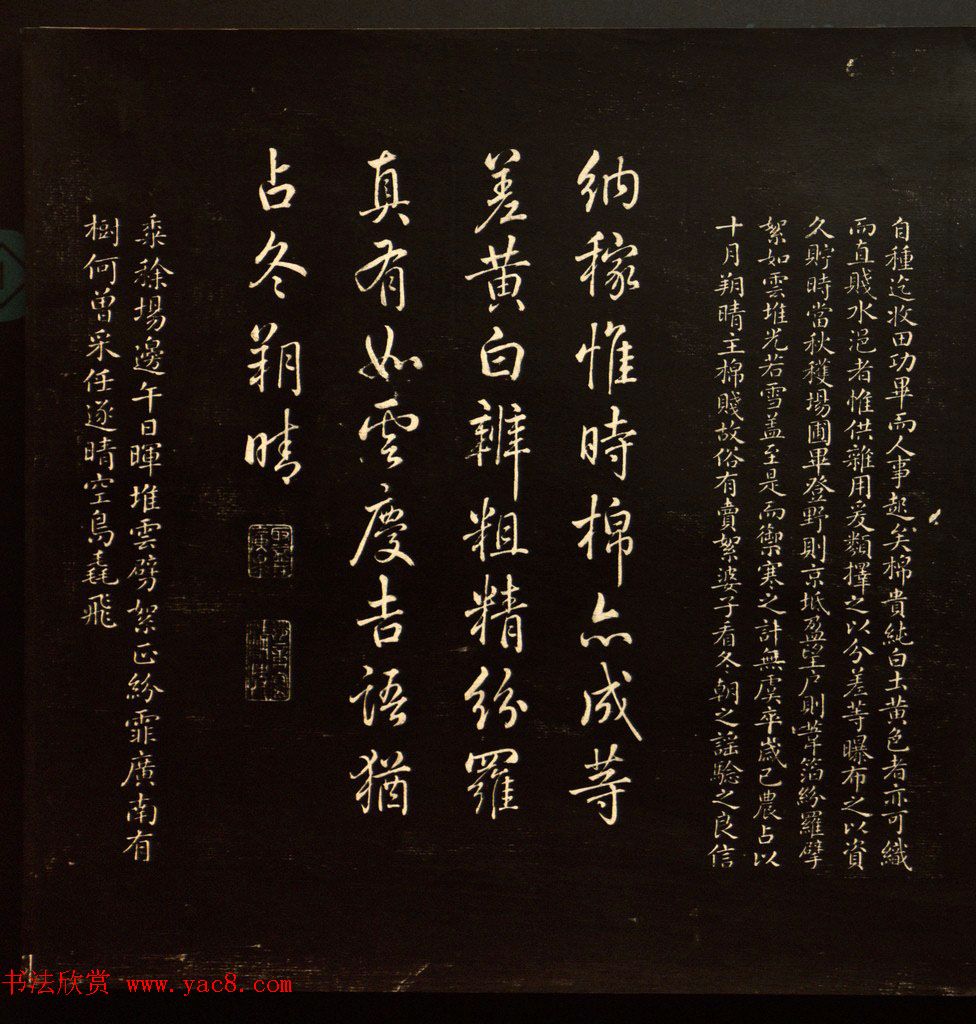 自種迄收田功畢而人事起矣棉貴純白土黄色者亦可織
而直賤水浥者惟供雜用爰類擇之以分差等曝布之以資
久貯時當秋穫場圃畢登野則京坻盈望户則葦箔紛羅擘
絮如雲堆光若雪盖至是而禦寒之計無虞卒歲已農占以
十月朔晴主棉賤故俗有賣絮婆子看冬朝之謡驗之良信
納稼惟時棉亦成等
差黄白辨粗精紛羅
真有如雲慶吉語猶
占冬朔晴
乘稌場邊午日暉堆雲劈絮正紛霏廣南有
樹何曽采任逐晴空鳥毳飛
书法欣赏 www.yac8.com